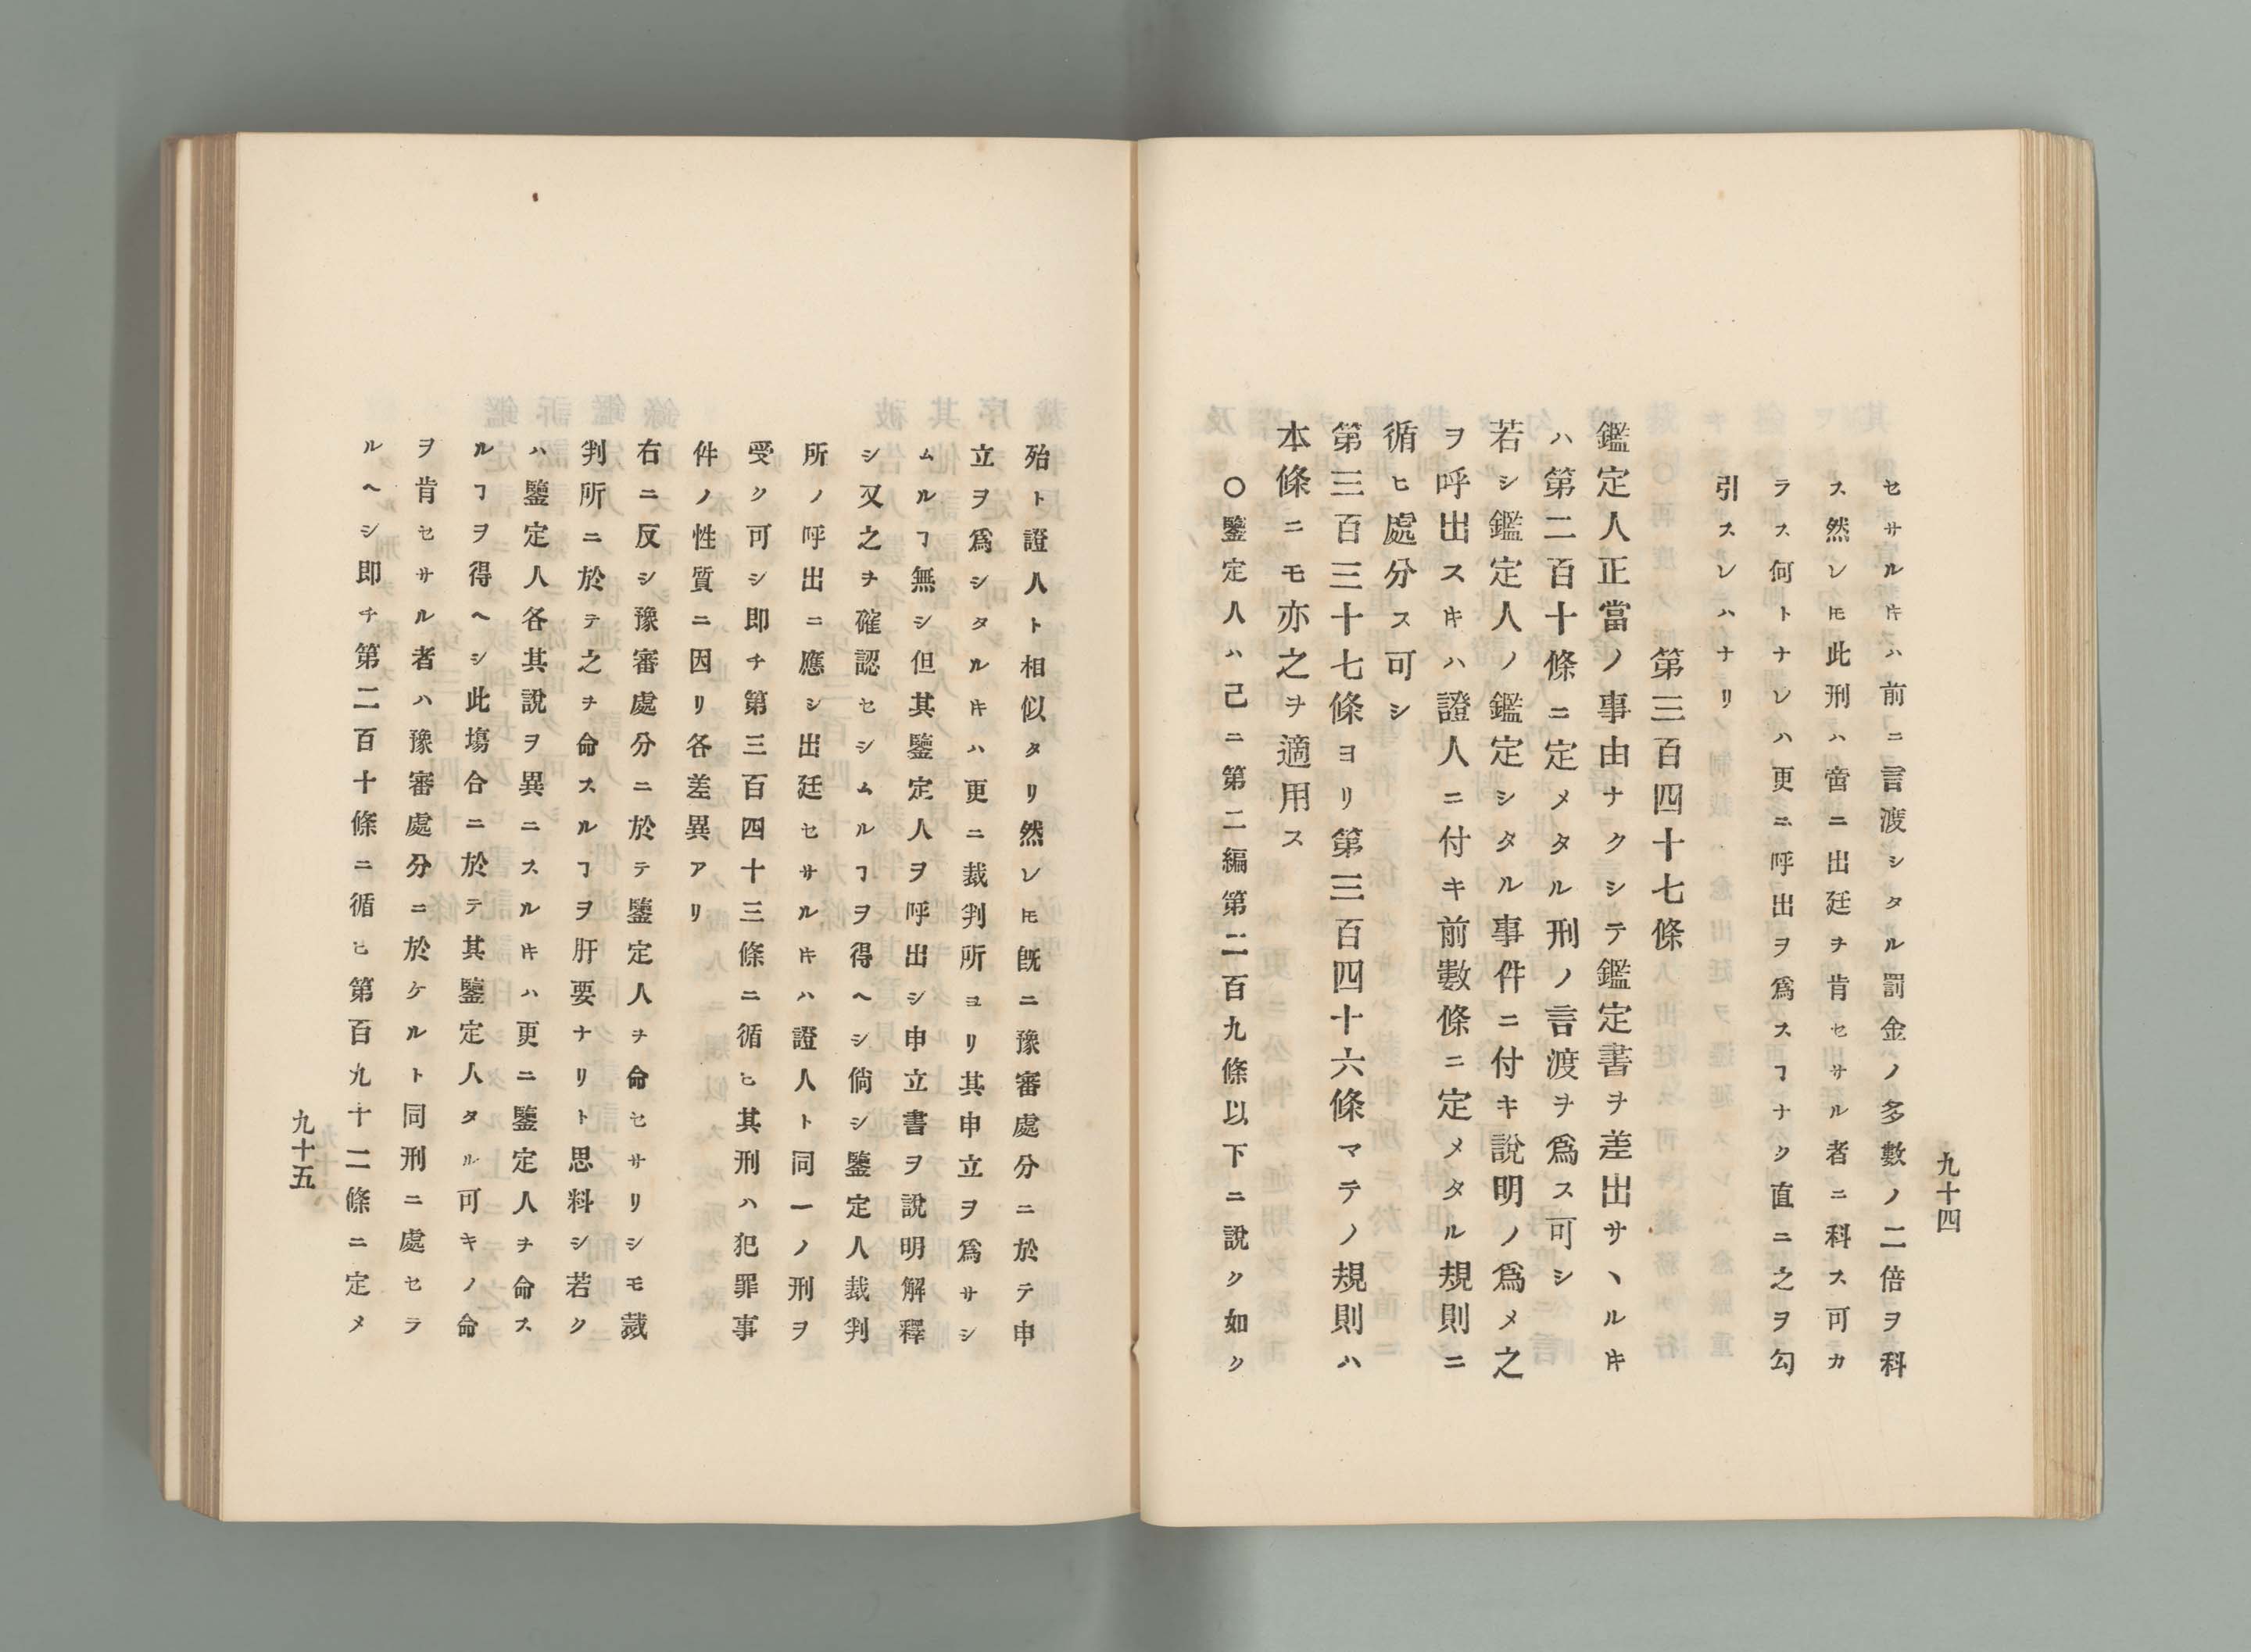 九十四
セサルキハ前ニ言渡シタル罰金ノ多數ノ二倍ヲ科
ス然レ𪜈此刑ハ啻ニ出廷ヲ肯セサル者ニ科ス可キカ
ラス何トナレハ更ニ呼出ヲ爲スヿナク直ニ之ヲ勾
引スレハナリ
第三百四十七條
鑑定人正當ノ事由ナクシテ鑑定書ヲ差出サヽルキ
ハ第二百十條ニ定メタル刑ノ言渡ヲ爲ス可シ
若シ鑑定人ノ鑑定シタル事件ニ付キ說明ノ爲メ之
ヲ呼出スキハ證人ニ付キ前數條ニ定メタル規則ニ
循ヒ處分ス可シ
第三百三十七條ヨリ第三百四十六條マテノ規則ハ
本條ニモ亦之ヲ適用ス
〇鑒定人ハ己ニ第二編第二百九條以下ニ說ク如ク
殆ト證人ト相似タリ然レ𪜈旣ニ豫審處分ニ於テ申
立ヲ爲シタルキハ更ニ裁判所ヨリ其申立ヲ爲サシ
ムルヿ無シ但其鑒定人ヲ呼出シ申立書ヲ說明解釋
シ又之ヲ確認セシムルヿヲ得ヘシ倘シ鑒定人裁判
所ノ呼出ニ應シ出廷セサルキハ證人ト同一ノ刑ヲ
受ク可シ即チ第三百四十三條ニ循ヒ其刑ハ犯罪事
件ノ性質ニ因リ各差異アリ
右ニ反シ豫審處分ニ於テ鑒定人ヲ命セサリシモ裁
判所ニ於テ之ヲ命スルヿヲ肝要ナリト思料シ若ク
ハ鑒定人各其說ヲ異ニスルキハ更ニ鑒定人ヲ命ス
ルヿヲ得ヘシ此塲合ニ於テ其鑒定人タル可キノ命
ヲ肯セサル者ハ豫審處分ニ於ケルト同刑ニ處セラ
ルヘシ即チ第二百十條ニ循ヒ第百九十二條ニ定メ
九十五